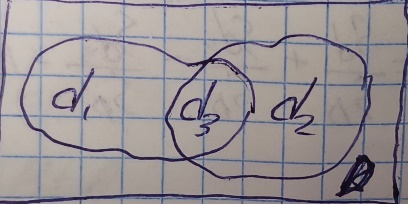 d₁ d₃ d₂